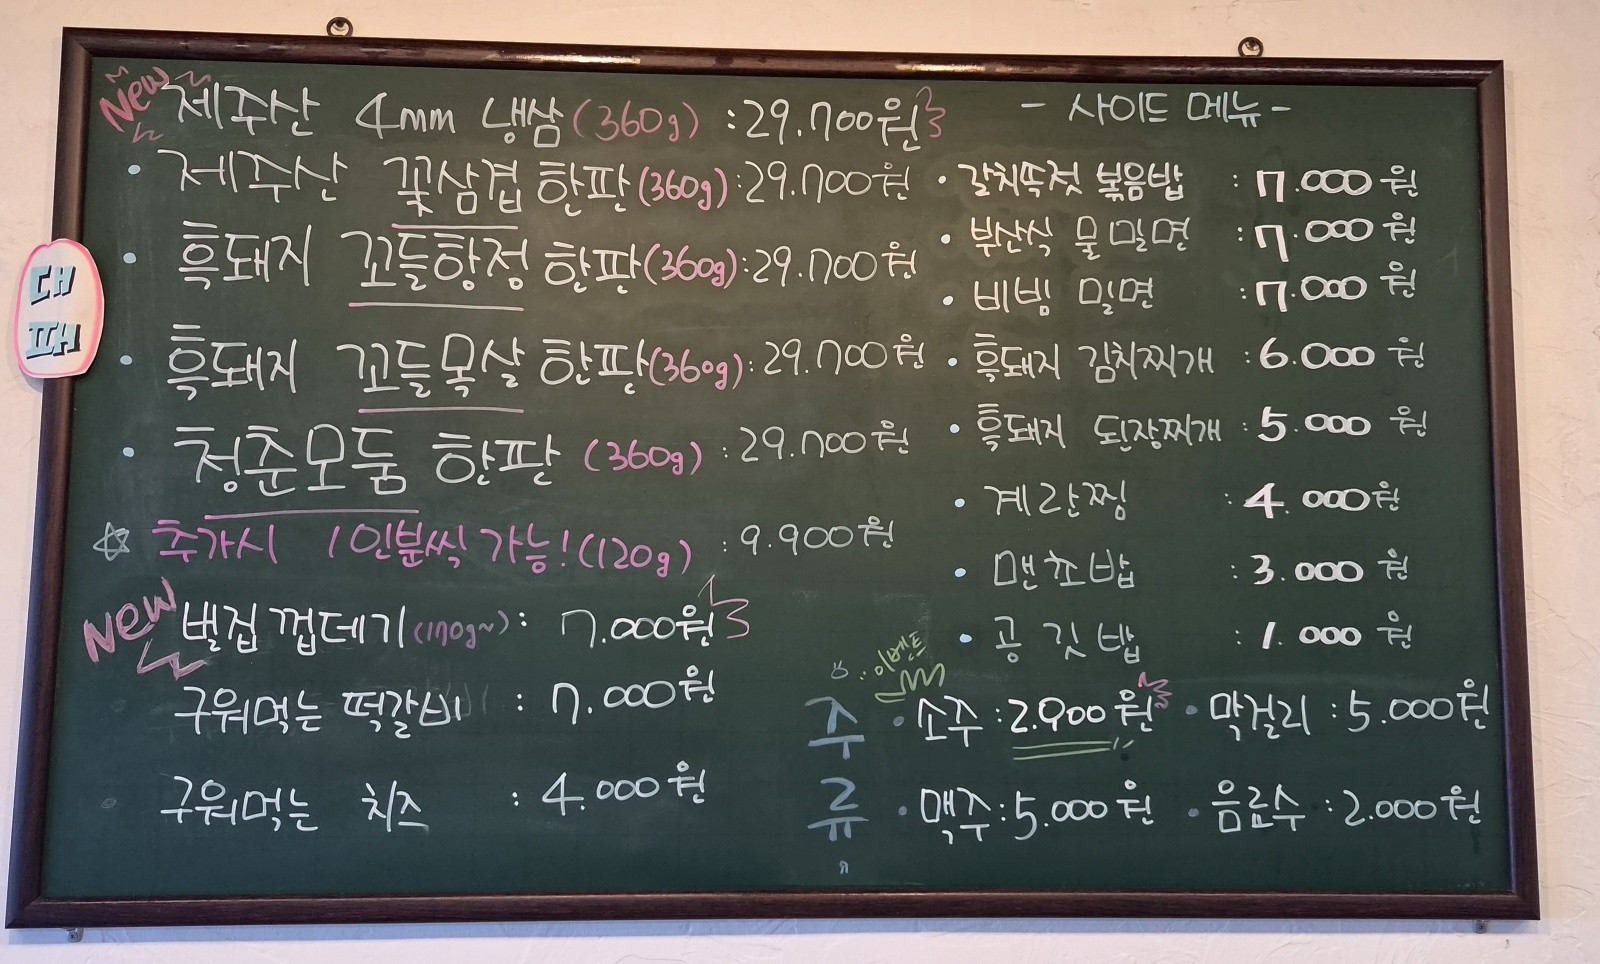 New 제주산 4mm 냉삼(360g) : 29.700원
· 제주산 꽃삼겹 한판(360g) : 29.700원
· 흑돼지 꼬들항정 한판(360g) : 29.700원
· 흑돼지 꼬들목살 한판(360g) : 29.700원
· 청춘모둠 한판 (360g) : 29.700원
☆ 추가시 1인분씩 가능! (120g) : 9.900원
New 벌겁껍데기(170g~) : 7.000원
구워먹는 떡갈비 : 7.000원
구워먹는 치즈 : 4.000원
대
파
- 사이드 메뉴 -
· 갈치속젓 볶음밥 : 7.000원
· 부산식 물밀면 : 7.000원
· 비빔 밀면 : 7.000원
· 흑돼지 김치찌개 : 6.000원
· 흑돼지 된장찌개 : 5.000원
· 계란찜 : 4.000원
· 맨쵸밥 : 3.000원
· 공깃밥 : 1.000원
이벤트
주류
· 소주 : 2.900원 · 막걸리 : 5.000원
· 맥주 : 5.000원 · 음료수 : 2.000원